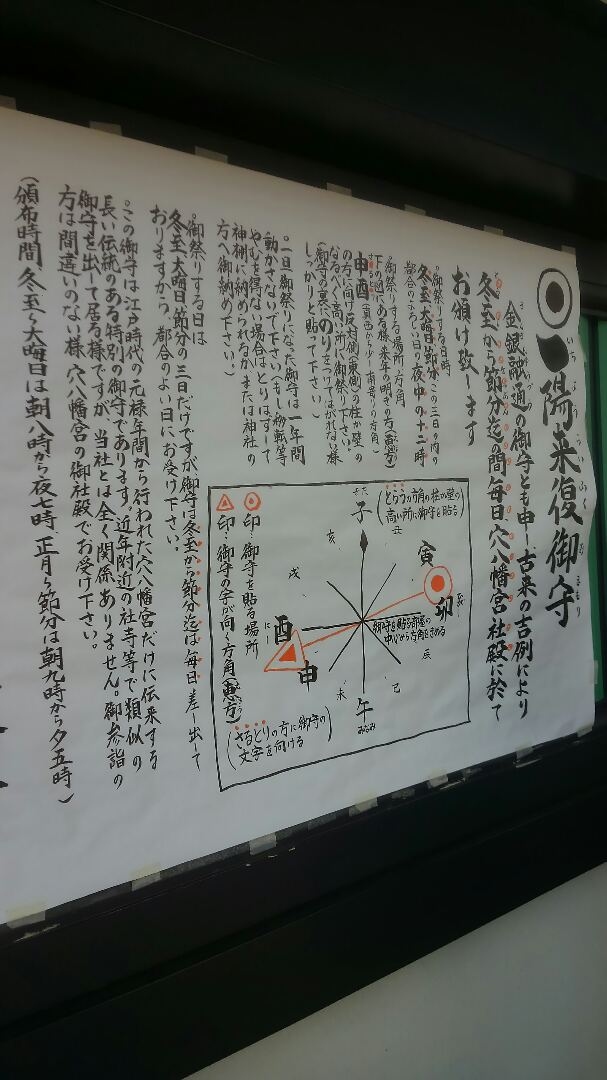 一陽来復御守
いちようらいふくおまもり
金銀融通の御守とも申し、古来の吉例により
冬至から節分迄の間毎日、穴八幡宮社殿に於て
お頒け致します
御祭りする日時
冬至、大晦日、節分この三日の内の
都合のよろしい日の夜中の十二時
御祭りする場所、方角
下の図にある様来年の明きの方(恵方)
申酉(真西から少し南寄りの方角)
の方に向け反対側(東側)の柱か壁の
なるべく高い所に御祭り下さい。
(御守の裏にのりをつけてはがれない様
しっかりと貼って下さい)
一旦御祭りになった御守は一年間
動かさないで下さい(もし移転等
やむを得ない場合はとりはずして
神棚に納められるか または神社の
方へ御納め下さい。)
御祭りする日は
冬至、大晦日、節分の三日だけですが御守は冬至から節分迄は毎日差し出して
おりますから、都合のよい日にお受け下さい。
この御守は江戸時代の元禄年間から行われた穴八幡宮だけに伝来する
長い伝統のある特別の御守であります。近年附近の社寺等で類似の
御守を出して居る様ですが、当社とは全く関係ありません。御参詣の
方は間違いのない様 穴八幡宮の御社殿でお受け下さい。
(頒布時間、冬至から大晦日は朝八時から夜七時、正月から節分は朝九時から夕五時)
(とらうの方角の柱か壁の
高い所に御守を貼る)
子
丑
寅
卯
辰
巳
午
未
申
酉
にし
戌
亥
御守を貼る部屋の
中心から方角をきめる
印…御守を貼る場所
印…御守の字が向く方角(恵方)
(さるとりの方に御守の
文字を向ける)